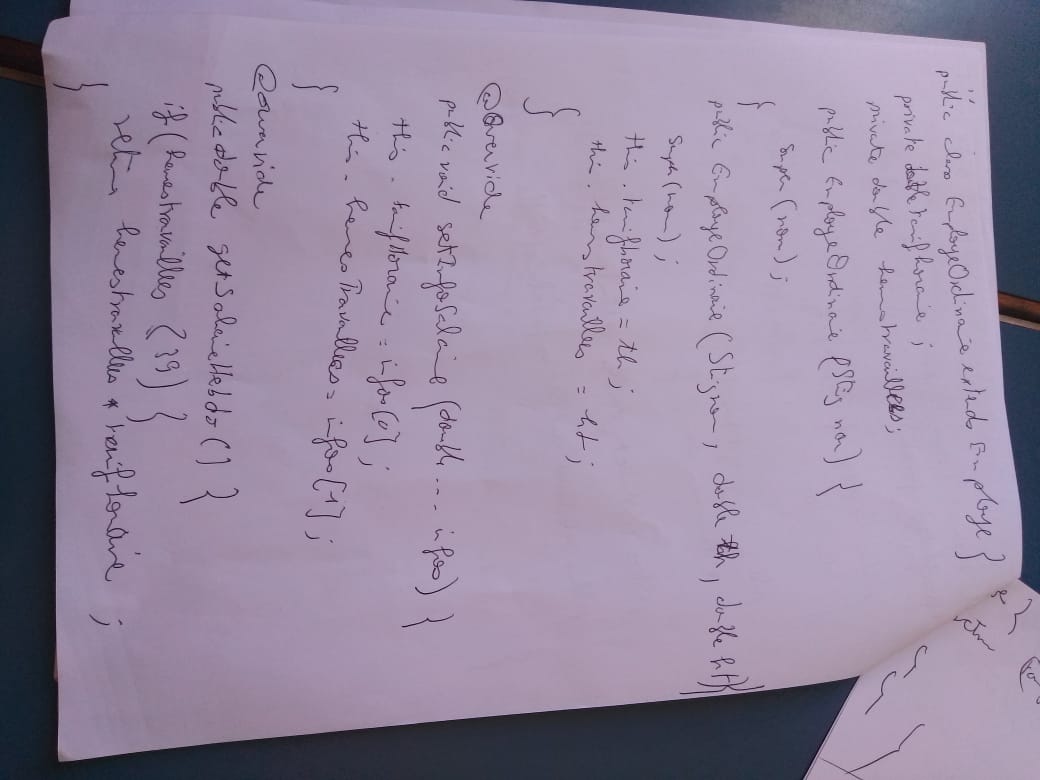 public class EmployeOrdinaire extends Employe }
private double tarifhoraire ;
private double heurestravaillees;
public EmployeOrdinaire (String nom) {
super (nom) ;
}
public EmployeOrdinaire (String nom, double th, double ht){
super (nom) ;
this . tarifhoraire = th ;
this . heurestravaillees = ht ;
}
@Override
public void setInfoSalaire (double ... infos) }
this . tarifHoraire = infos [0] ;
this . heuresTravaillees = infos [1] ;
}
@override
public double getSalaireHebdo () {
if (heurestravaillees { 39) }
return heurestravaillees * tarifhoraire ;
}